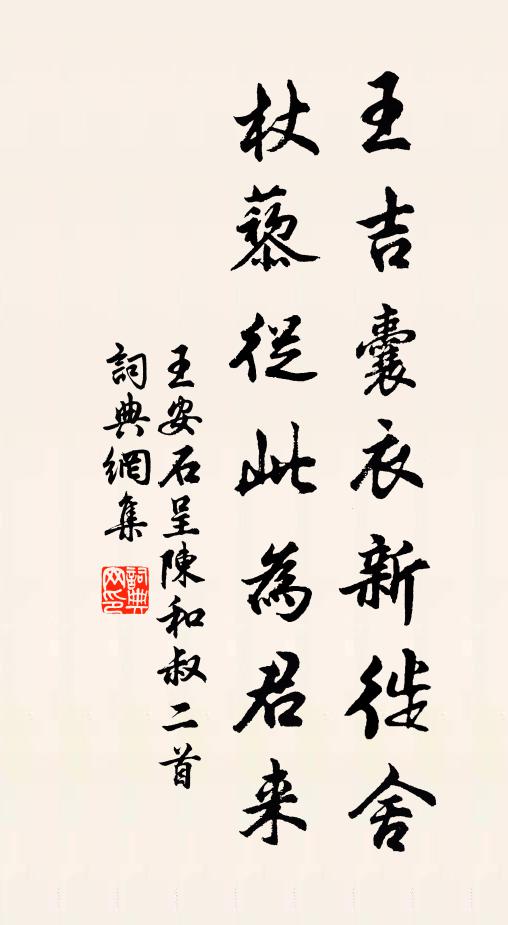 王吉囊衣新徙舍
杖藜從此為君来
王安石呈陳和叔二首
詞典網集
詞典網印